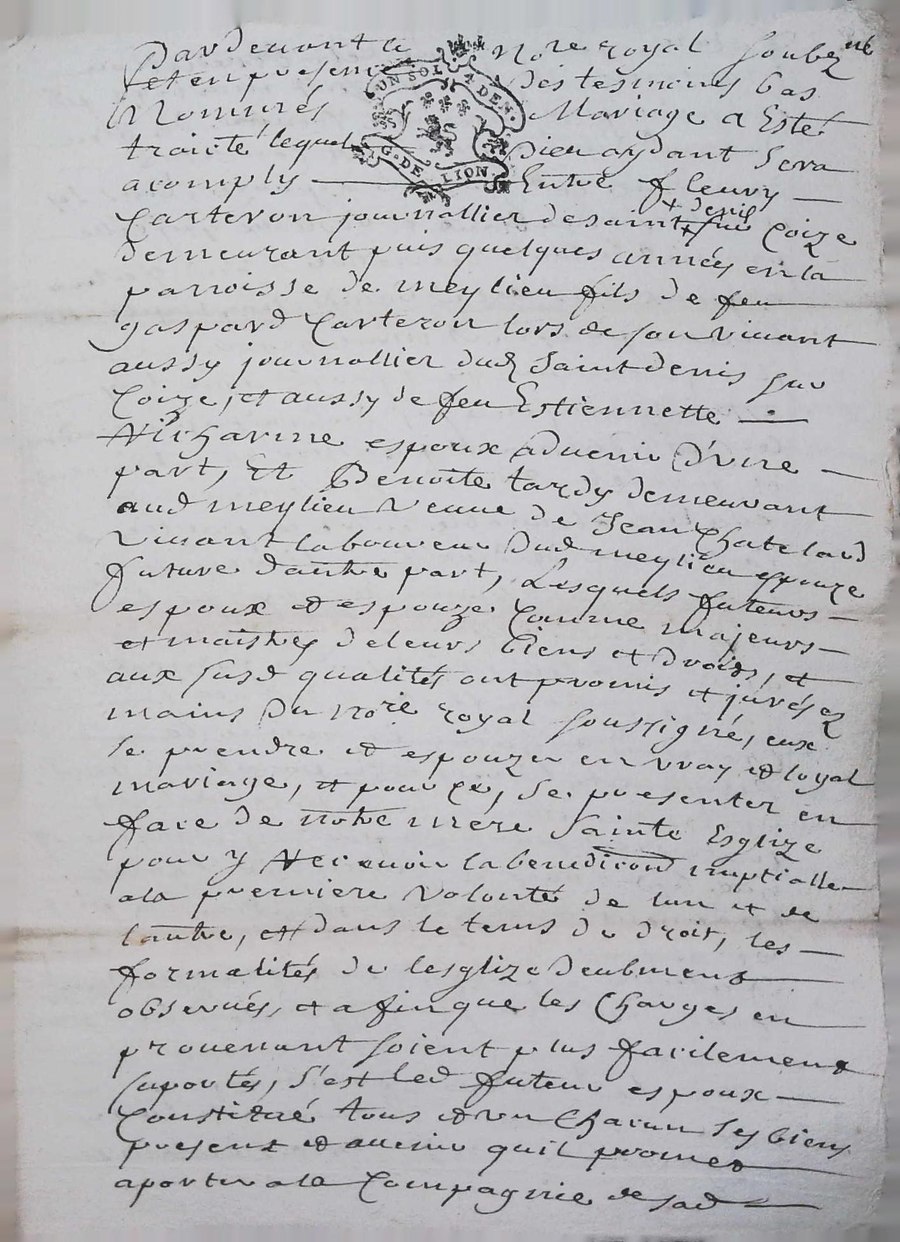 Pardevant le Nore royal soubzne
et en presence des tesmoins bas
Nommés Mariage a Esté
UN SOL 4 DEN.
G. DE LION
traicté lequel Dieu aydant sera
acomply Entre fleury
+ denis
Carteron journallier de saint sur Coize
demeurant puis quelques années en la
parroisse de meylieu fils de feu
gaspard Carteron lors de son vivant
aussy journallier dud Saint Denis sur
Coize, et aussy de feu Estiennette
espoux advenir d'une
part, Et Benoite tardy demeurant
aud meylieu veuve de Jean Chatelard
vivant laboureur dud meylieu espouze
future d'autre part, Lesquels futeurs
espoux et espouze comme majeurs
et maistres de leurs biens et droits, et
aux susd qualités ont promis et jurés ez
mains du nore royal soussigné, eux
se prendre et espouzer en vray et loyal
mariage, et pour ce, se presenter en
face de notre mere Sainte Esglize
pour y Recevoir la benediction nuptialle
a la premiere volonté de lun et de
lautre, et dans le tems de droit, les
formalités de lesglize deubment
observés, et afin que les Charges en
provenant soient plus facilement
suportés, s'est led futeur espoux
Constitué tous et un chacun ses biens
present et avenir quil promet
aporter a la Compagnie de sad